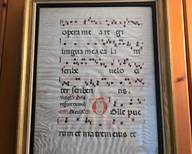 opera me a re gi
lingua mea ca la m'
scribe uelo ci
ter scriben
Olle puc
rum et matrem eius et